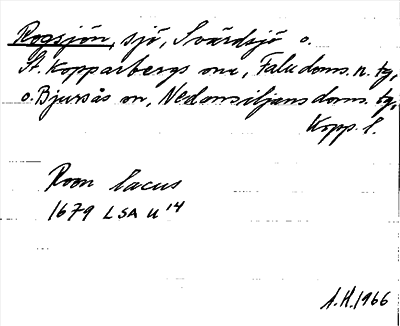 Rogsjön, sjö, Svärdsjö o.
St. Kopparbergs snr, Falu doms. n. tg,
o. Bjursås sn, Nedansiljans doms. tg,
Kopp. l.
Roon lacus
1679 LSA U 14
A.H. 1966